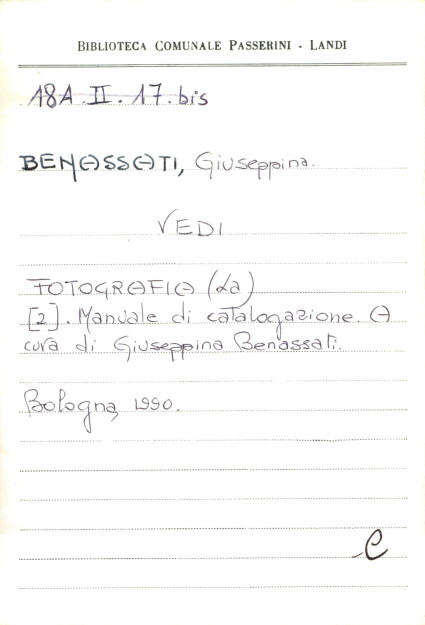 BIBLIOTECA COMUNALE PASSERINI - LANDI
18A.II.17.bis
BENASSATI, Giuseppina.
VEDI
FOTOGRAFIA (La)
[2]. Manuale di catalogazione. A
cura di Giuseppina Benassati.
Bologna, 1990.
C